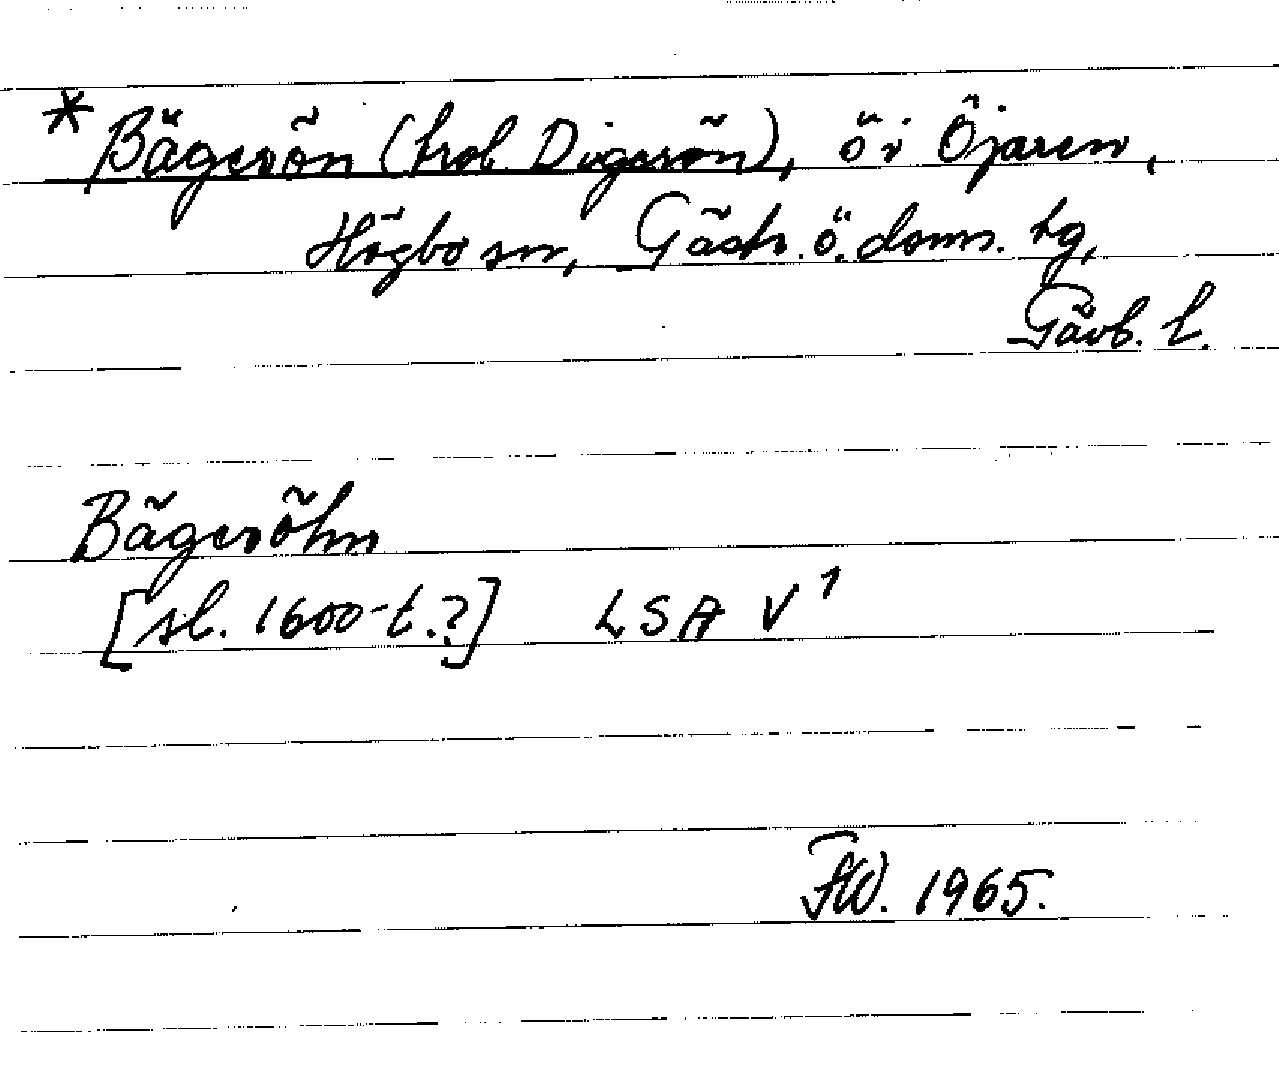 * Bägerön (trol. Digerön), ö i Öjaren,
Högbo sn, Gästr. ö. doms. tg,
Gävb. l.
Bägeröhn
[sl. 1600-t.?] LSA V¹
FW. 1965.